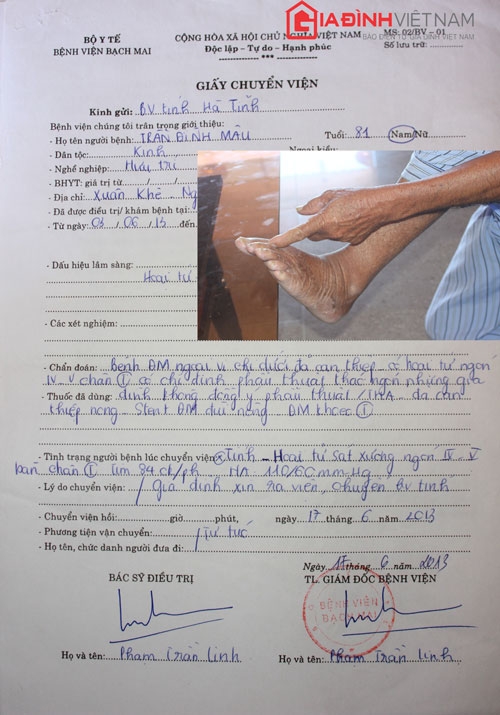 GIADÌNHVIỆTNAM
BÁO ĐIỆN TỬ GIA ĐÌNH VIỆT NAM
BỘ Y TẾ
BỆNH VIỆN BẠCH MAI
CỘNG HÒA XÃ HỘI CHỦ NGHĨA VIỆT NAM
Độc lập - Tự do - Hạnh phúc
*** 
MS: 02/BV - 01
Số lưu trữ:
GIẤY CHUYỂN VIỆN
Kính gửi: BV tỉnh Hà Tĩnh
Bệnh viện chúng tôi trân trọng giới thiệu:
- Họ tên người bệnh: TRẦN ĐÌNH MẬU Tuổi: 81 Nam/Nữ
- Dân tộc: Kinh Ngoại kiều:
- Nghề nghiệp: Hưu trí
- BHYT: giá trị từ / /
- Địa chỉ: Xuân Khê
- Đã được điều trị/ khám bệnh tại:
- Từ ngày: 03 / 06 / 13 đến
- Dấu hiệu lâm sàng:
Hoại tử
- Các xét nghiệm:
- Chẩn đoán: Bệnh ĐM ngoại vi chi dưới đã can thiệp có hoại tử ngón
IV - V chân (T) có chỉ định phẫu thuật tháo ngón nhưng gia
- Thuốc đã dùng: đình không đồng ý phẫu thuật / THA đã can
thiệp nong Stent ĐM đùi nông ĐM khoeo (T)
- Tình trạng người bệnh lúc chuyển viện: Tỉnh - Hoại tử sát xương ngón IV - V
bàn chân (T) Tim 84 ck/ph HA 110/60 mm Hg
- Lý do chuyển viện: / Gia đình xin ra viện, chuyển BV tỉnh
- Chuyển viện hồi: giờ phút, ngày 17 tháng 6 năm 2013
- Phương tiện vận chuyển: / Tự túc
- Họ tên, chức danh người đưa đi:
Ngày 17 tháng 6 năm 2013
BÁC SỸ ĐIỀU TRỊ
TL. GIÁM ĐỐC BỆNH VIỆN
BỆNH VIỆN
BẠCH MAI
Họ và tên: Phạm Trần Linh
Họ và tên: Phạm Trần Linh